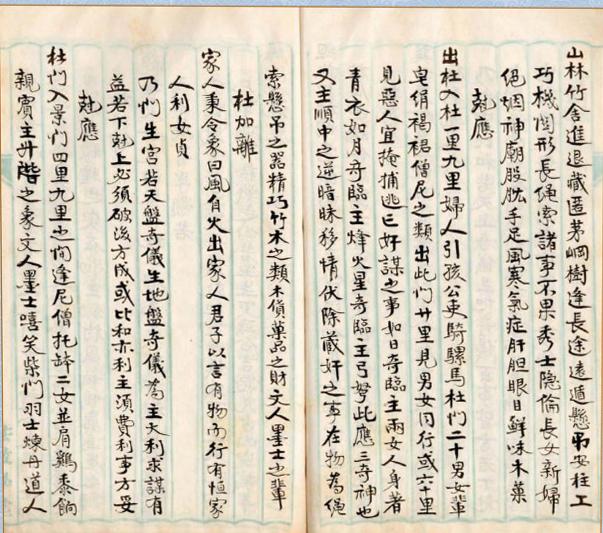 山林竹舍進退藏匿茅岡樹途長途遠遁懸吊安柱工
巧機関形長绳索諸事不果秀士隐倫長女新婦
绝烟神廟股肱手足風寒氣症肝胆眼目鮮味木菓
尅應
出杜入杜一里九里婦人引孩公吏騎騾馬杜门二十男女輩
皂絹褐裙僧尼之類出此门廿里見男女同行或六十里
見惡人宜掩捕逃亡奸謀之事如日奇臨主兩女人身著
青衣如月奇臨主烽火星奇臨主弓弩此應三奇神也
又主順中之逆暗昧移情伏除藏奸之事在物為绳
索懸吊之器精巧竹木之類木貨菓品之財文人墨士之輩
杜加離
家人秉令象曰風自火出家人君子以言有物而行有恒家
人利女貞
乃门生宫若天盤奇儀生地盤奇儀為主大利求謀有
益若下尅上必須破後方成或比和亦利主須費利事方妥
尅應
杜门入景门四里九里之间逢尼僧托钵二女並肩鷄黍餉
親賓主升階之象文人墨士嘻笑柴门羽士煉丹道人